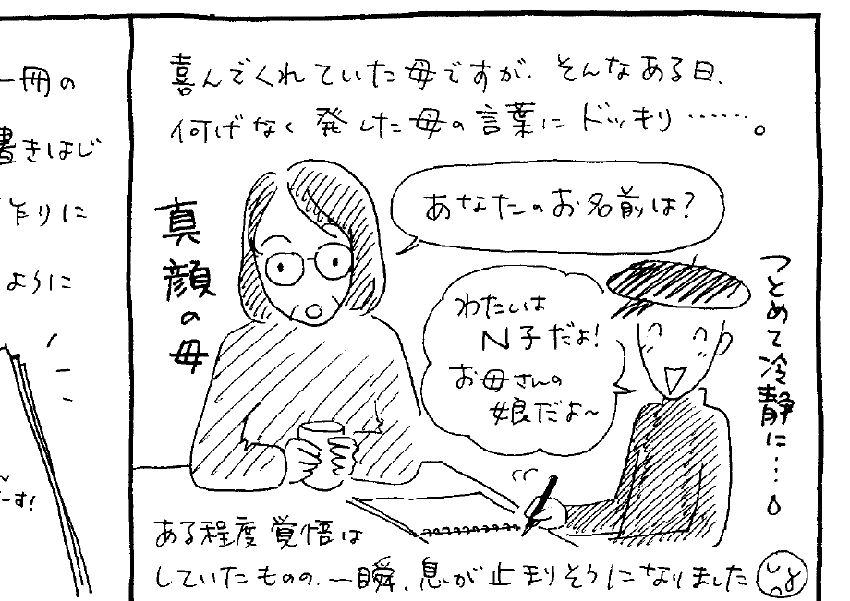 喜んでくれていた母ですが、そんなある日、
何げなく発した母の言葉にドッキリ……。
真顔の母
あなたのお名前は?
わたしは
N子だよ!
お母さんの
娘だよ〜
つとめて冷静に…
ある程度覚悟は
していたものの、一瞬、息が止まりそうになりました
一冊の
書きはじ
乍りに
ように
ーす!